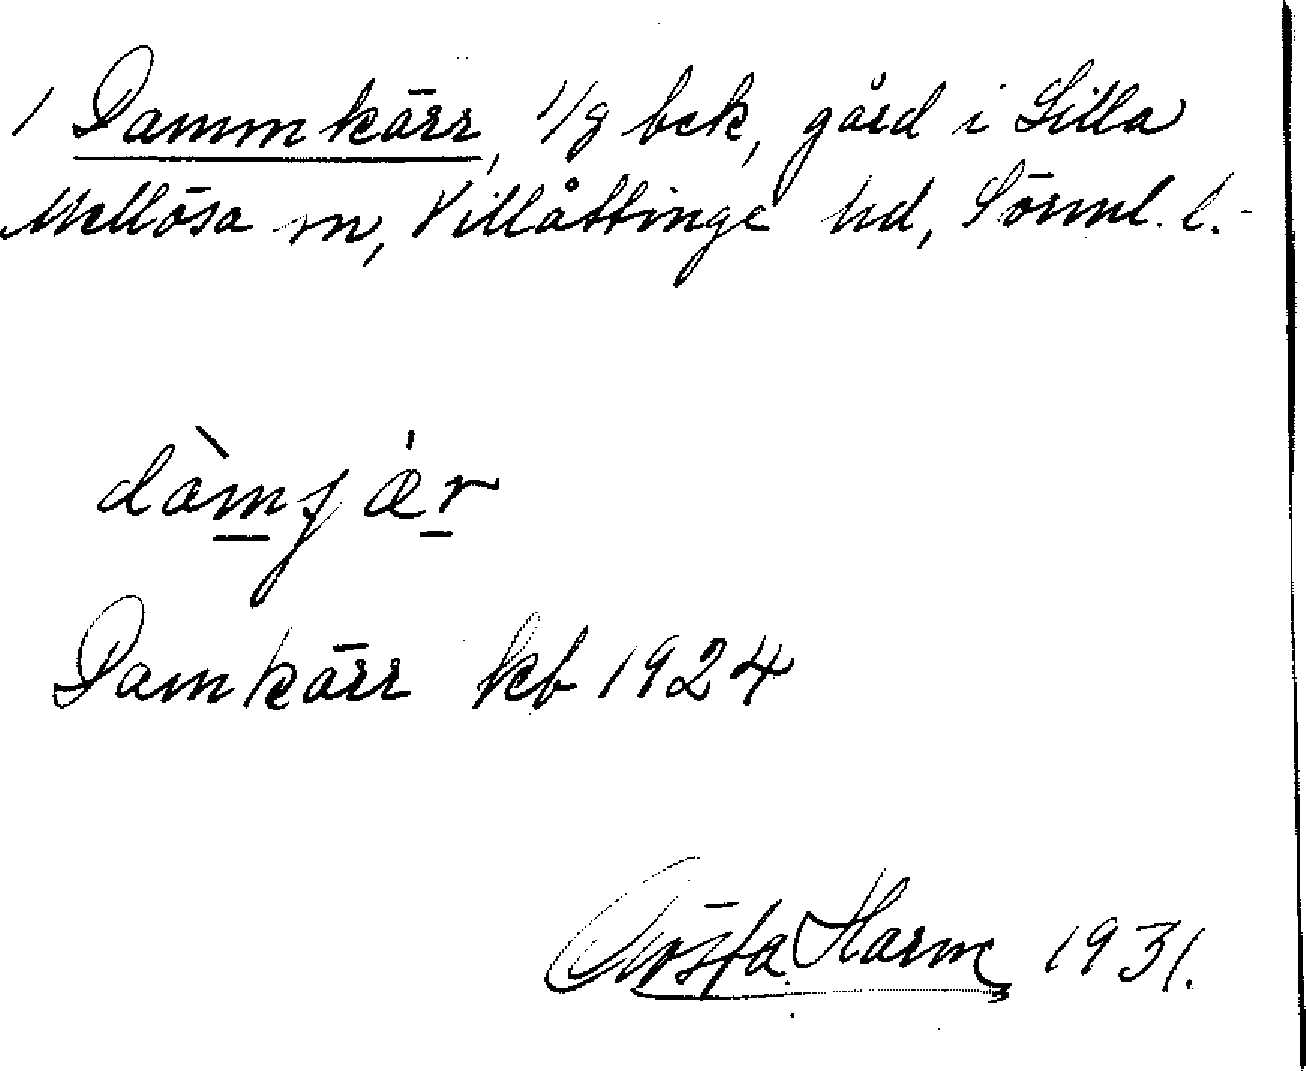 1 Dammkärr, 1/8 bek, gård i Lilla
Mellösa sn, Villåttinge hd, Sörml. l.
dàmjǽr
Damkärr kb 1924
Gösta Harm 1931.